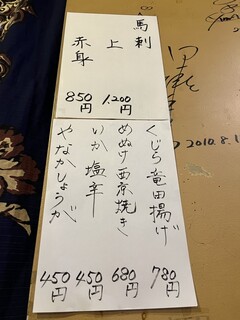 馬刺
上 1,200円
赤身 850円
くじら竜田揚げ 780円
めぬけ西京焼き 680円
いか塩辛 450円
やなかしょうが 450円
2010.8.1